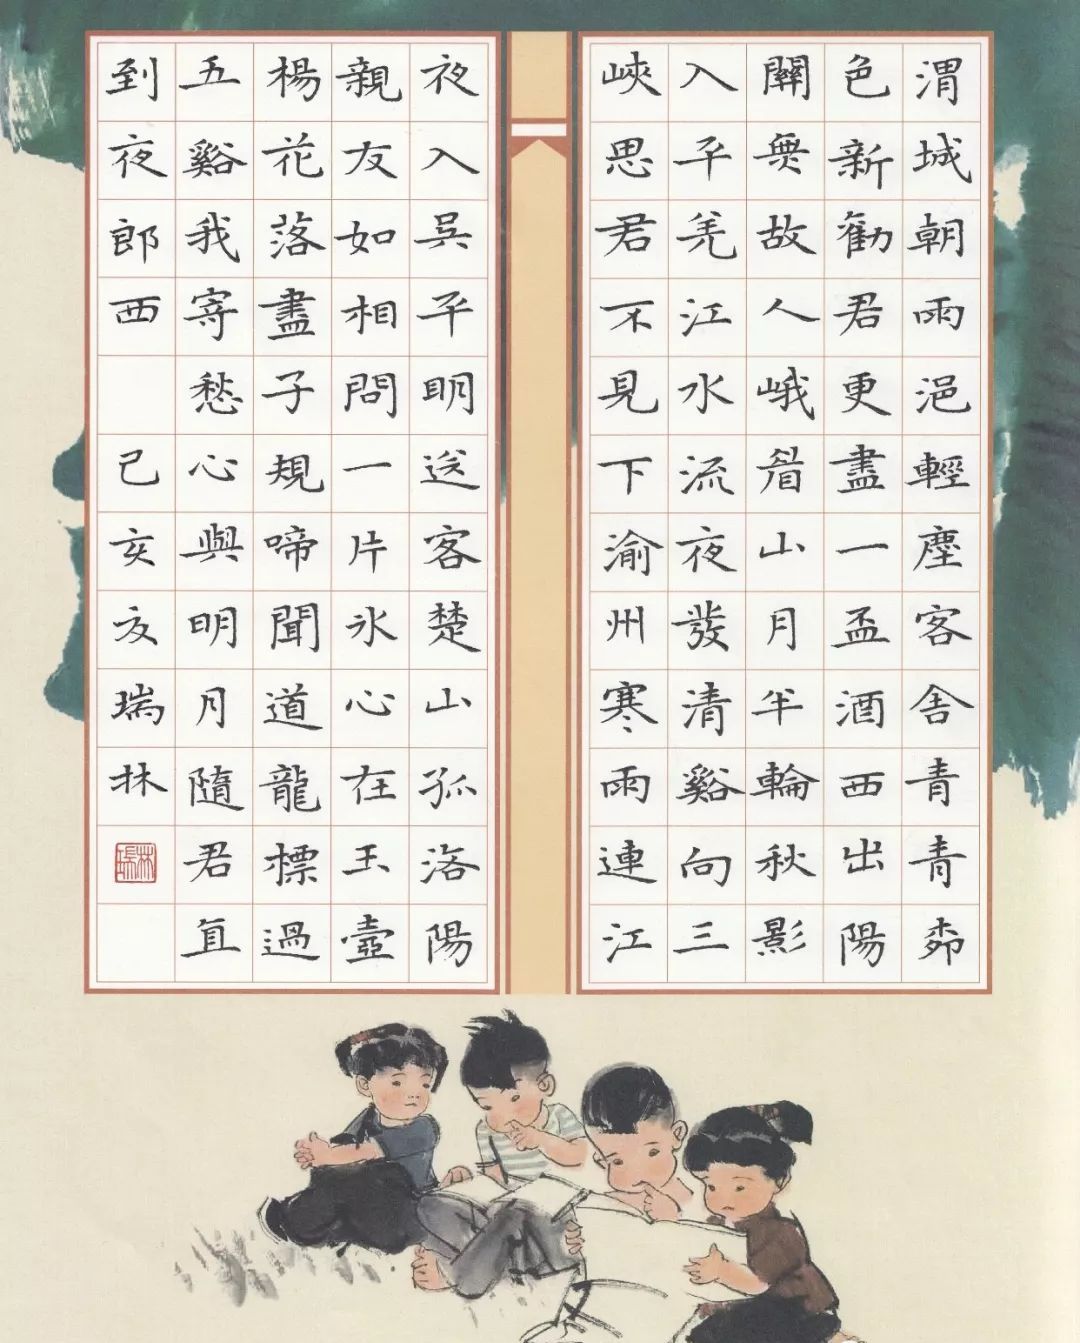 渭城朝雨浥輕塵客舍青青柳
色新勸君更盡一盃酒西出陽
關無故人峨眉山月半輪秋影
入平羌江水流夜發清谿向三
峽思君不見下渝州寒雨連江
夜入吳平明送客楚山孤洛陽
親友如相問一片氷心在玉壺
楊花落盡子規啼聞道龍標過
五谿我寄愁心與明月隨君直
到夜郎西 己亥瑞林